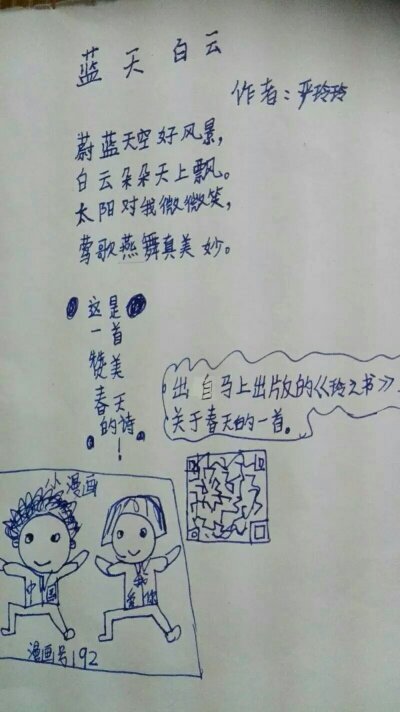 蓝天白云
作者：严玲玲
蔚蓝天空好风景，
白云朵朵天上飘。
太阳对我微微笑，
莺歌燕舞真美妙。
这是
一首
赞美
春天
的诗！
出自马上出版的《玲之书》
关于春天的一首。
小漫画
中国
我
爱你
漫画号192